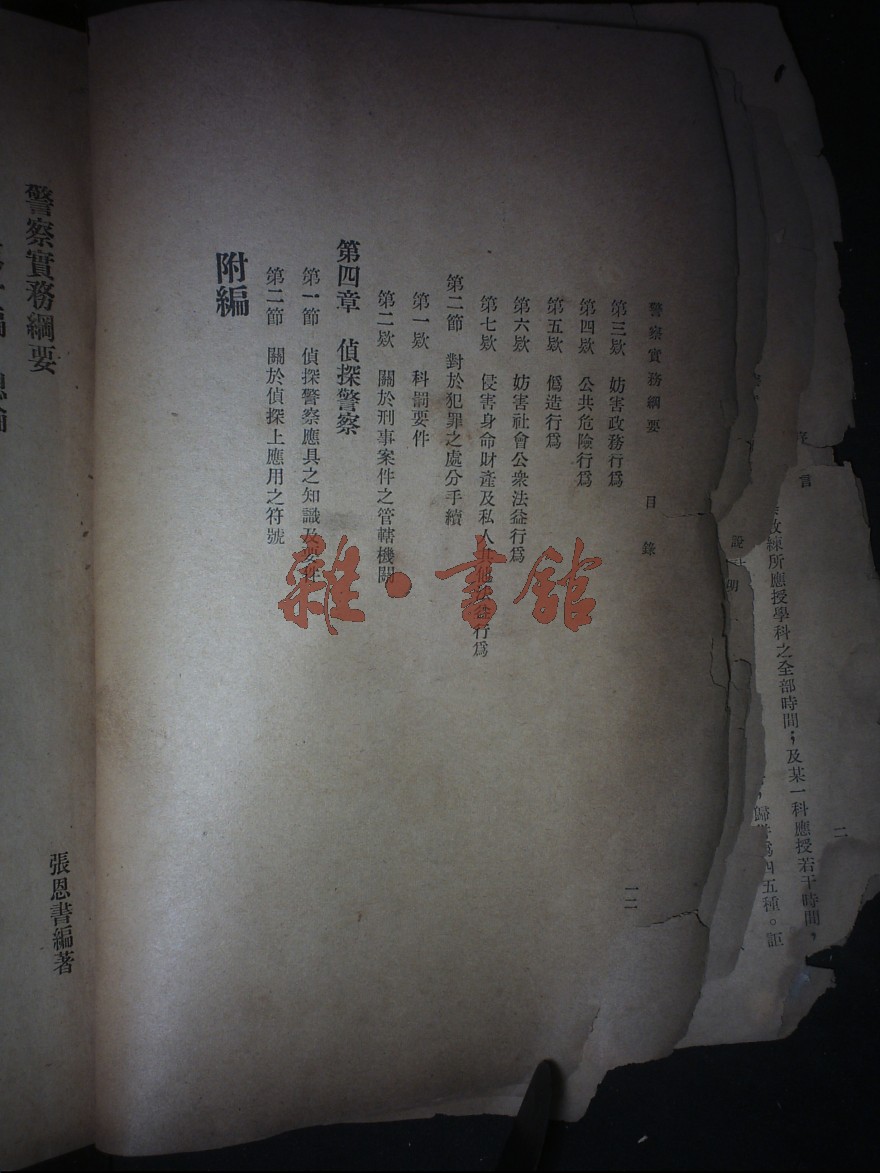 警察實務綱要　目錄
第三欵　妨害政務行爲
第四欵　公共危險行爲
第五欵　僞造行爲
第六欵　妨害社會公衆法益行爲
第七欵　侵害身命財產及私人其他法益行爲
第二節　對於犯罪之處分手續
第一欵　科罰要件
第二欵　關於刑事案件之管轄機關
第四章　偵探警察
第一節　偵探警察應具之知識及
第二節　關於偵探上應用之符號
附編
一二
雜·書館
言
二
教練所應授學科之全部時間；及某一科應授若干時間，
爲四五種。詎
說
明
警察實務綱要
張恩書編著